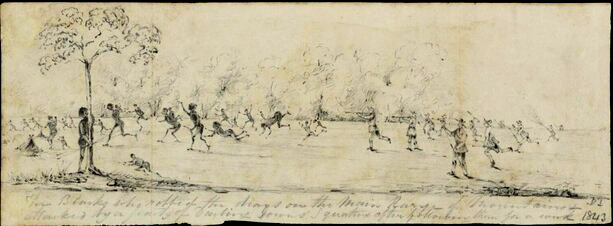 The Blacks who robbed the drays on the Main Range of Mountains DT
attacked by a party of Darling Downs Squatters after following them for a week 1843